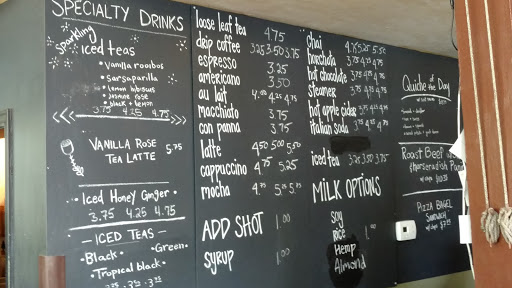 SPECIALTY DRINKS
Sparkling
iced teas
• Vanilla rooibos
• Sarsaparilla
• lemon hibiscus
• Jasmine rose
• black + lemon
3.75 4.25 4.75
VANILLA ROSE
TEA LATTE 5.75
• Iced Honey Ginger •
3.75 4.25 4.75
— ICED TEAS —
• Black • • Green •
• Tropical black •
loose leaf tea 4.75
drip coffee 3.25 3.50 3.75
espresso 3.25
americano 3.50
au lait 4.00 4.25 4.75
macchiato 3.75
con panna 3.75
latte 4.50 5.00 5.50
cappuccino 4.75 5.25
mocha 4.75 5.25 5.75
ADD SHOT 1.00
SYRUP 1.00
Chai 4.75 5.25 5.50
horchata
hot chocolate
steamer
hot apple cider
italian soda
iced tea 3.25 3.50 3.75
MILK OPTIONS
Soy
Rice 1.00
Hemp
Almond
Quiche of the Day
Roast Beef
Horseradish
PIZZA BAGEL
SANDWICH